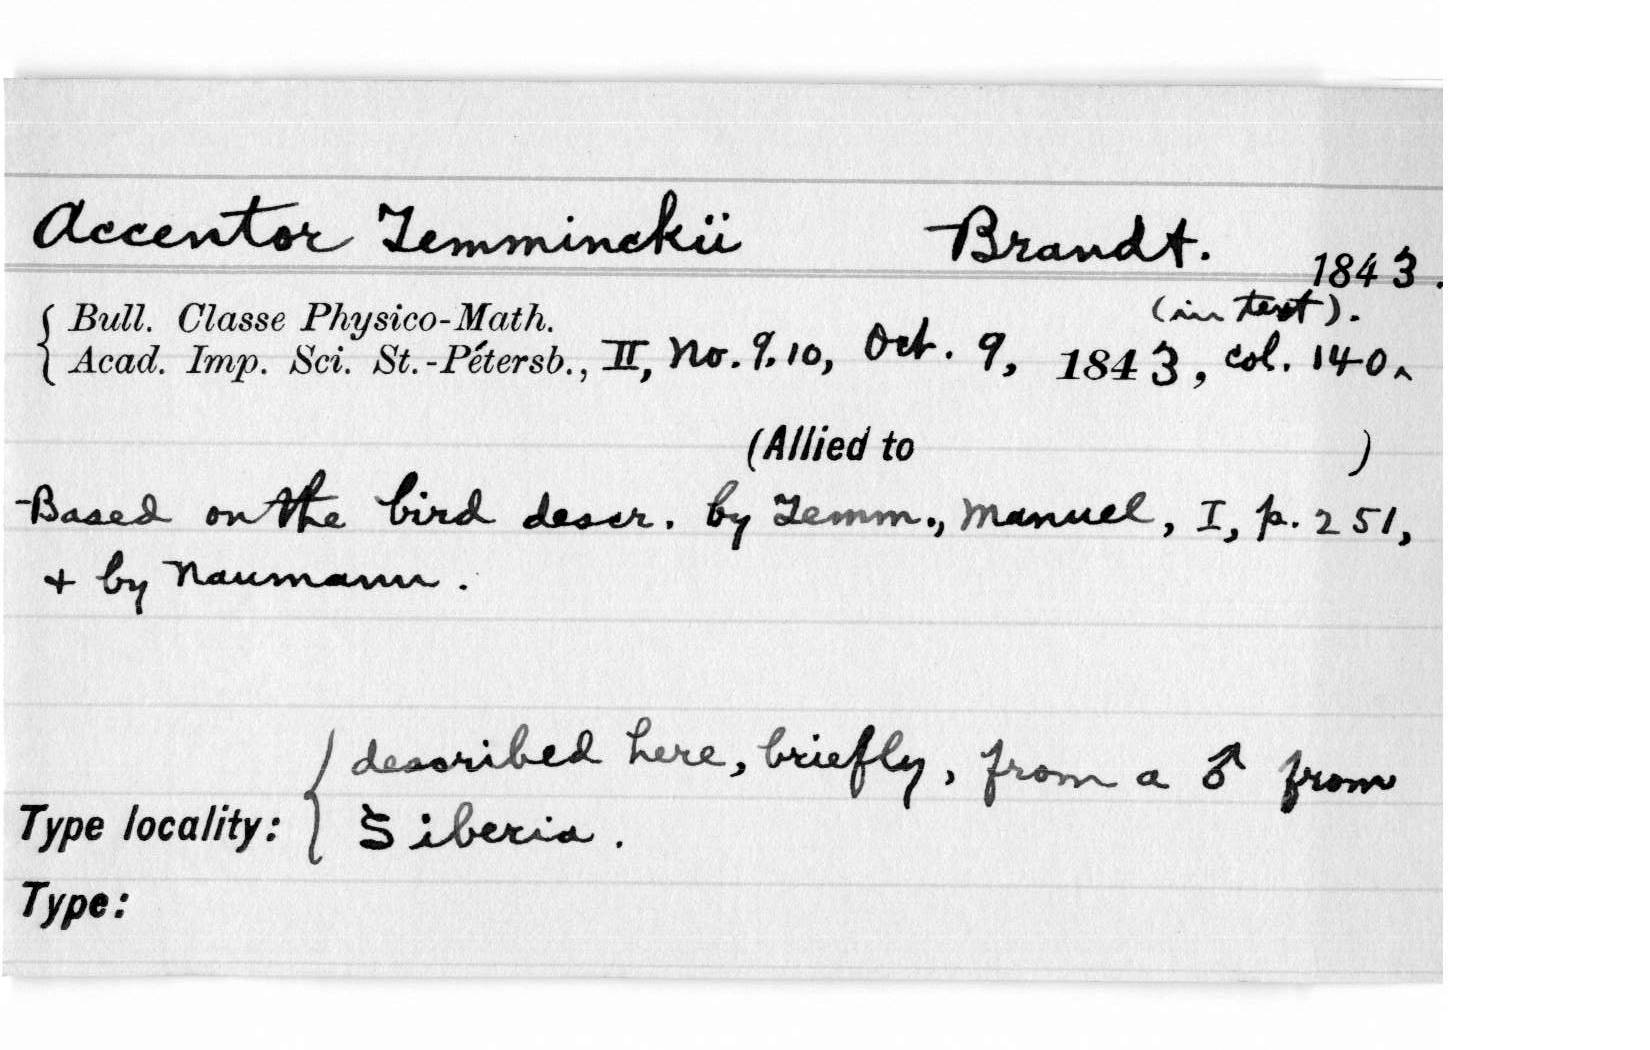 Accentor Temminckii Brandt. 1843.
Bull. Classe Physico-Math. (in text).
Acad. Imp. Sci. St.-Pétersb., II, No. 9.10, Oct. 9, 1843, col. 140‸
(Allied to )
Based on the bird descr. by Temm., Manuel, I, p. 251,
+ by Naumann.
described here, briefly, from a ♂ from
Type locality: Siberia.
Type: